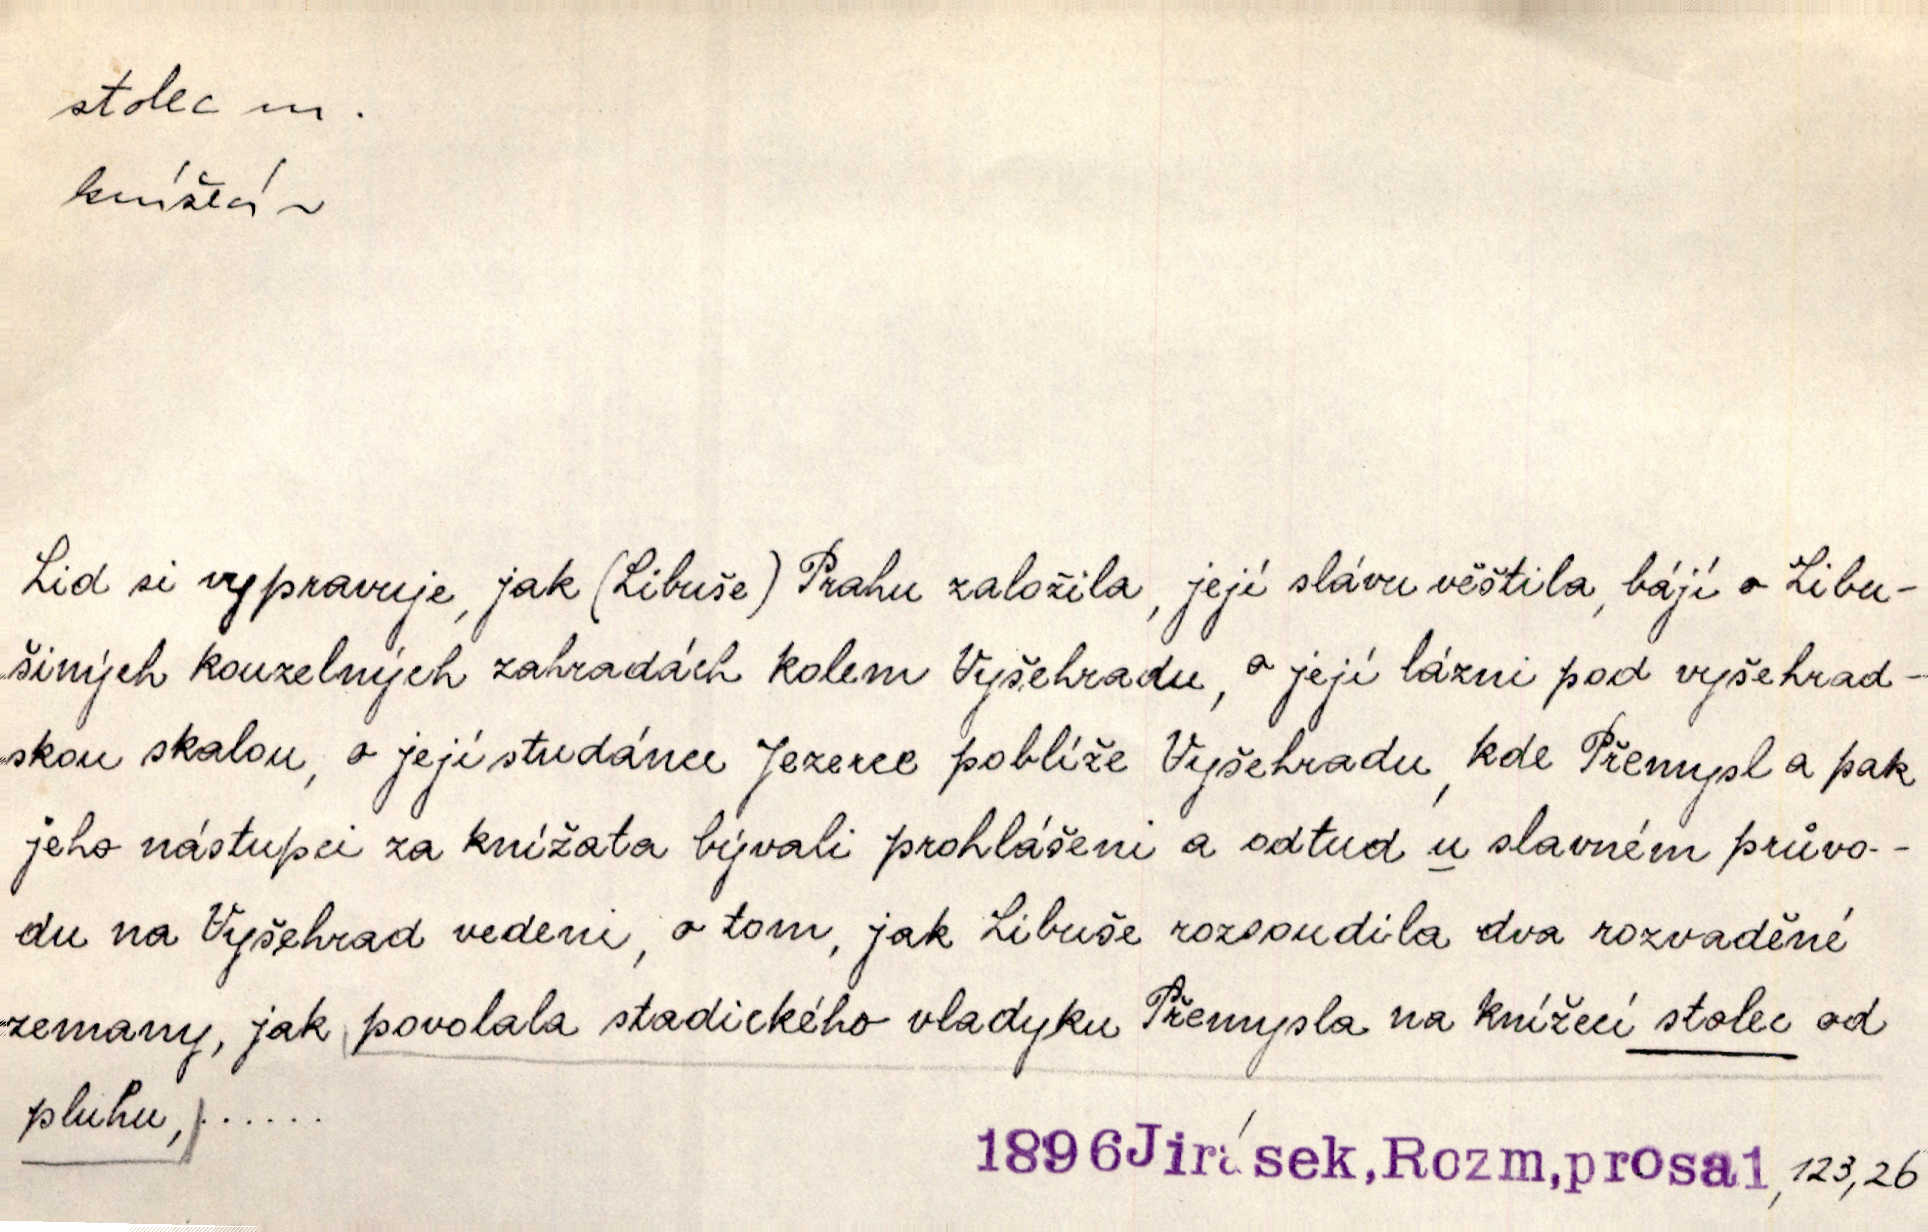 stolec m.
knížecí ~
Lid si vypravuje, jak (Libuše) Prahu založila, její slávu věštila, bájí o Libu-
šiných kouzelných zahradách kolem Vyšehradu, o její lázni pod vyšehrad-
skou skalou, o její studánce Jezerce poblíže Vyšehradu, kde Přemysl a pak
jeho nástupci za knížata bývali prohlášeni a odtud u slavném průvo-
du na Vyšehrad vedeni, o tom, jak Libuše rozsoudila dva rozvaděné
zemany, jak povolala stadického vladyku Přemysla na knížecí stolec od
pluhu, ......
1896 Jirásek, Rozm, prosa1, 123,26